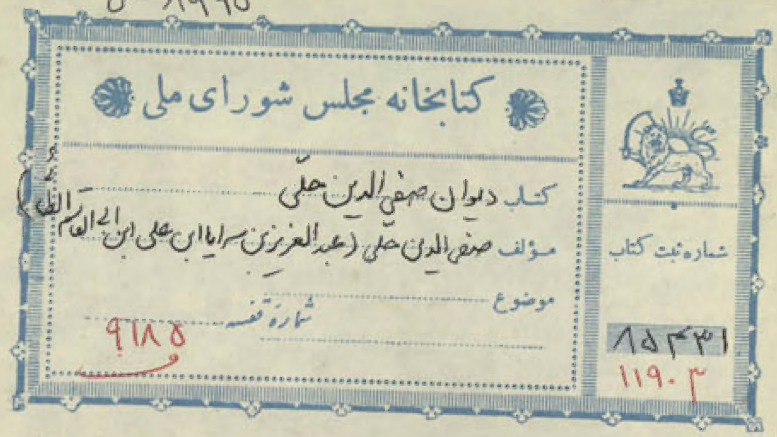 کتابخانه مجلس شورای ملی
کتاب دیوان صفی الدین حلّی
مؤلف صفی الدین حلّی (عبدالعزیز بن سرایا ابن علی ابن ابی القاسم
موضوع
شمارهٔ قفسه ۹۱۸۵
شماره ثبت کتاب
۸۵۴۳۱
۱۱۹۰۳